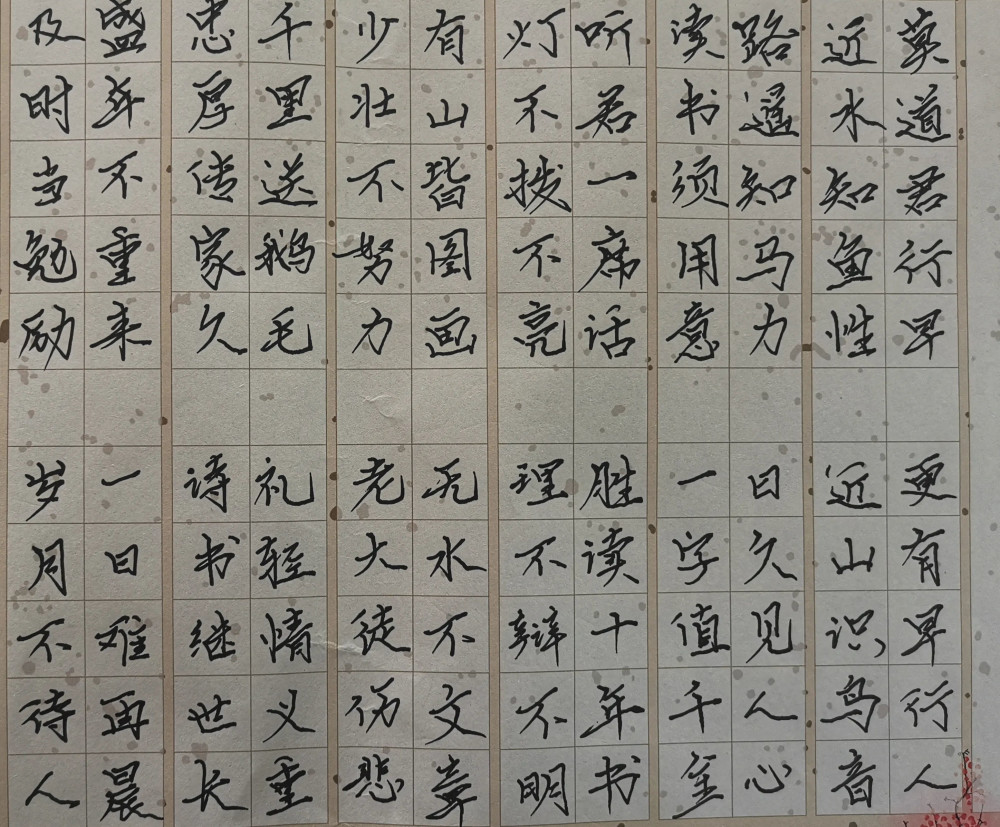 莫道君行早 更有早行人
近水知鱼性 近山识鸟音
路遥知马力 日久见人心
读书须用意 一字值千金
听君一席话 胜读十年书
灯不拨不亮 理不辩不明
有山皆图画 无水不文章
少壮不努力 老大徒伤悲
千里送鹅毛 礼轻情义重
忠厚传家久 诗书继世长
盛年不重来 一日难再晨
及时当勉励 岁月不待人